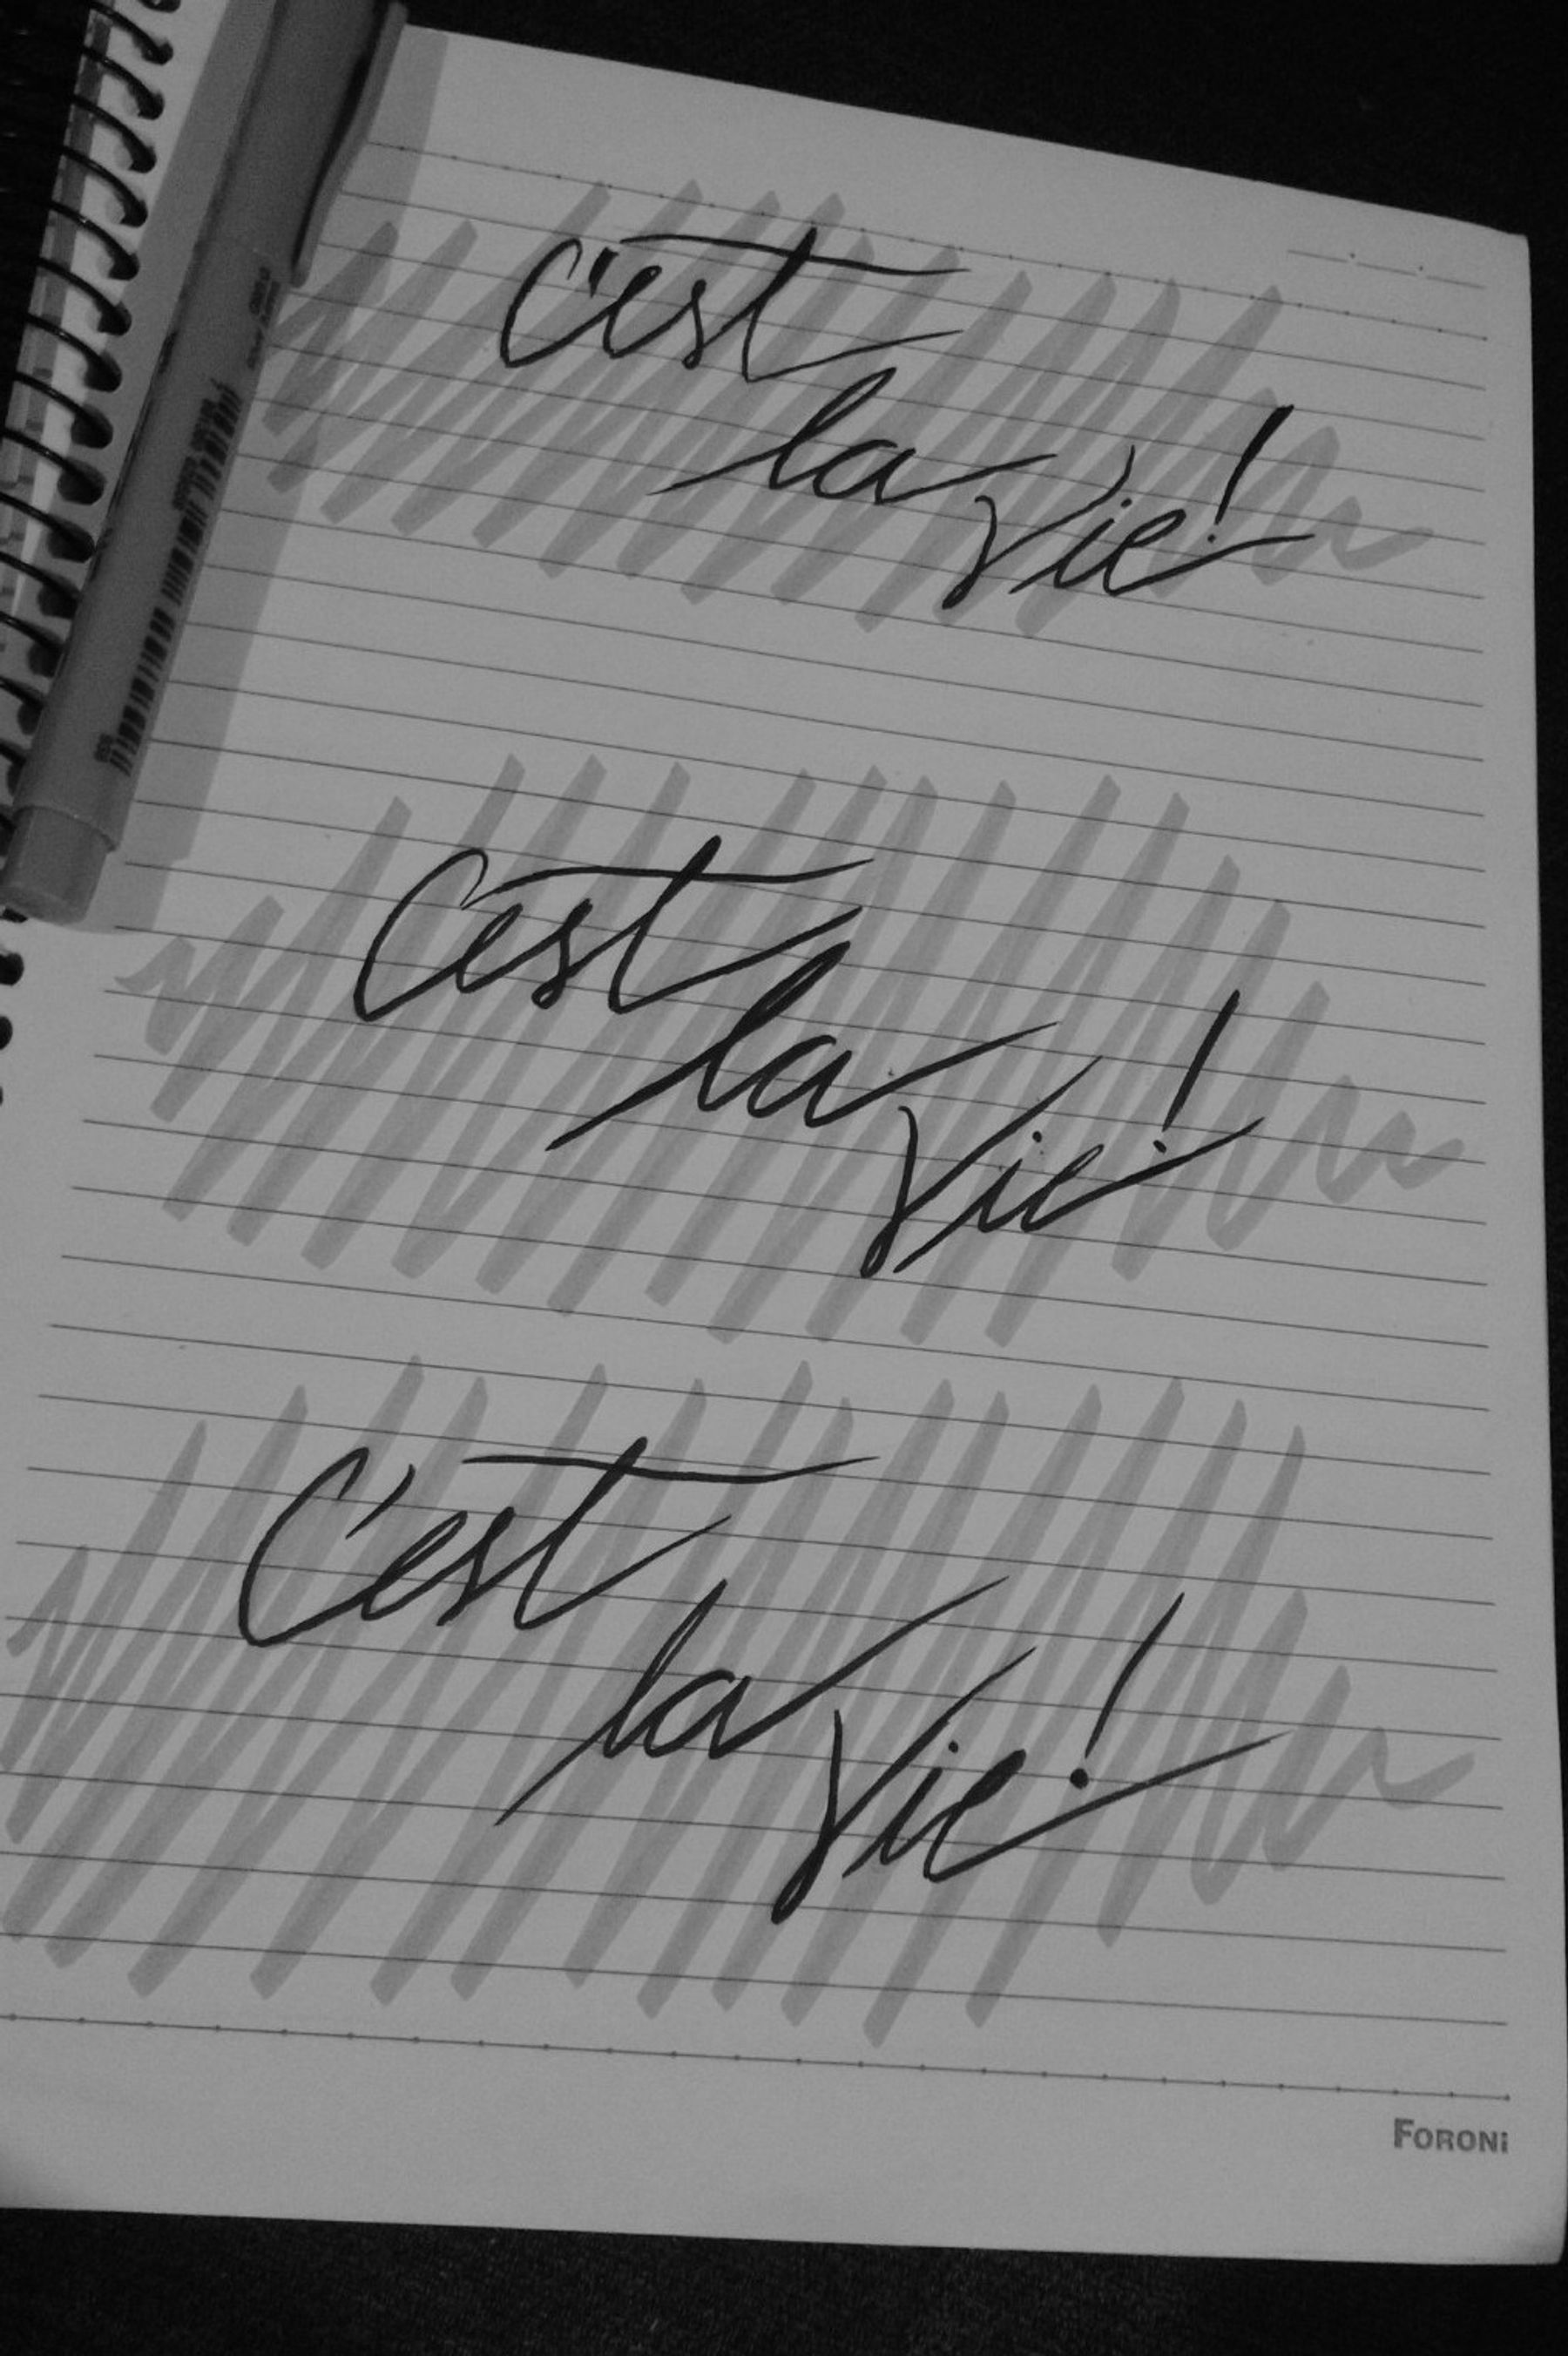 c'est
la
Vie!
C'est
la
Vie!
C'est
la
Vie!
FORONi